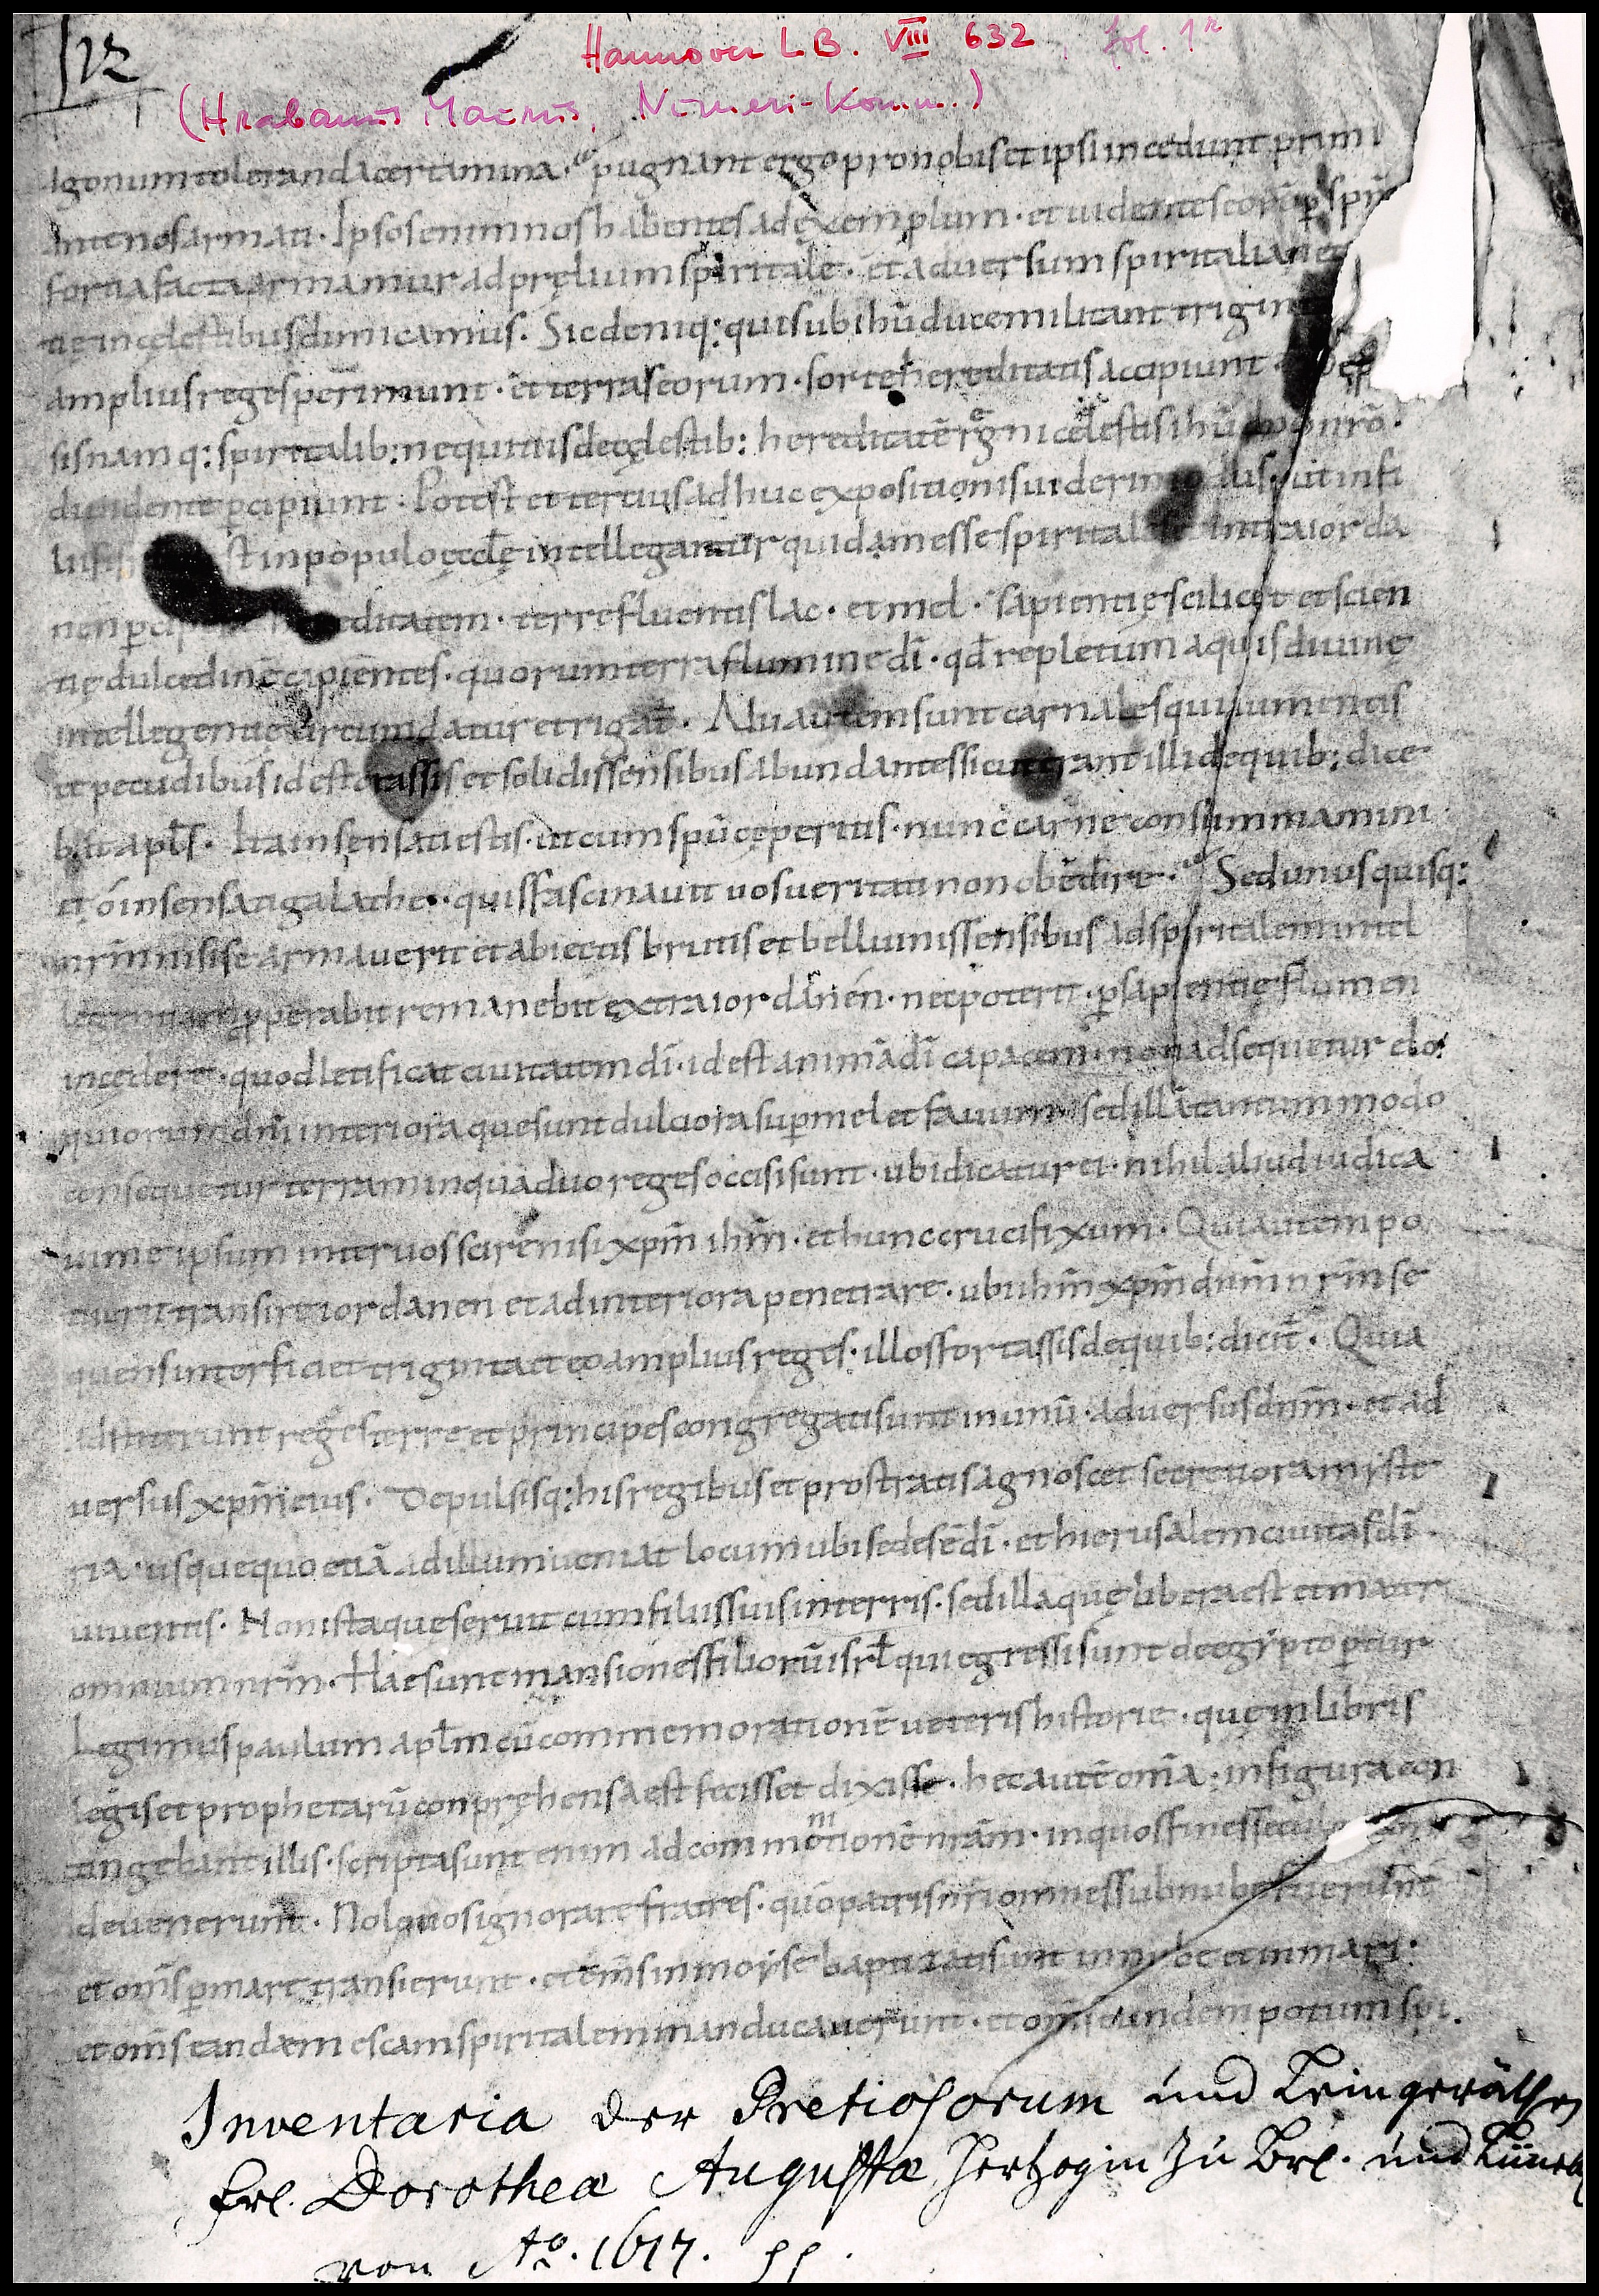 12
Hannover LB. VIII 632, fol. 1r
(Hrabanus Maurus, Numeri-Komm.)
agonum toleranda certamina · pugnant ergo pro nobis et ipsi incedunt primi
ante nos armati · Ipsos enim nos habentes ad exemplum · et videntes eorū ꝑ spm
fortia facta armamur ad pręlium spiritale · et adversum spiritalia
tię in cęlestibus dimicamus · Sic deniq: qui sub ihū duce militant
amplius reges perimunt · et terras eorum · sorte hereditatis accipiunt ·
sis namq: spiritalib: nequitiis de cęlestib: hereditatē regni cęlestis ihū nrō ·
dividente ꝑcipiunt · Potest et tertius adhuc expositionis videri modus · ut infi
st in populo ęcclę intellegantur quidam esse extra iorda
nen terre fluentis lac · et mel · sapientię scilicet et scien
tię dulcedinē capientes · quorum terra flumine dī · qđ repletum aquis divinę
intellegentię circumdatur et rigat̄ · Alii autem sunt carnales qui iumentis
et pecudibus id est crassis et solidis sensibus abundantes sicut erant illi de quib: dice
bat apłs · Ita insensati estis · ut cum spū ceperitis · nunc carne consummamini
et ó insensati galathe · quis fascinavit vos veritati non obedire · Sed unusquisq:
nrm nisi se armaverit et abiectis brutis et belluinis sensibus ad spiritalem intel
legentiam ꝓperabit remanebit extra iordanén · nec poterit · ꝑ sapientię flumen
incedere · quod letificat civitatem dī · id est animā dī capacem · non adsequetur elo
quiorum dnī interiora que sunt dulciora suꝑ mel et favum · sed illā tantummodo
consequetur terram in quā duo reges occisi sunt · ubi dicatur ei · nihil aliud iudica
vi me ipsum inter vos scire nisi xpm̄ ihm̄ · et hunc crucifixum · Qui autem po
tuerit transire iordanen et ad interiora penetrare · ubi ihm̄ xpm̄ dnm̄ nrm̄ se
quens interficiet triginta et eo amplius reges · illos fortassis de quib: dicit̄ · Quia
adstiterunt reges terre et principes congregati sunt in unū · adversus dnm̄ · et ad
versus xpm̄ eius · Depulsisq: his regibus et prostratis agnoscet secretiora myste
ria · usquequo etiā ad illum veniat locum ubi sedes ē dī · et hierusalem civitas dī
viventis · Non ista quę servit cum filiis suis in terris · sed illa quę libera est et mater
omnium nrm̄ · Hae sunt mansiones filiorū isrł qui egressi sunt de egipto
Legimus paulum apłm cū commemorationē veteris historie · que in libris
legis et prophetarū conprehensa est fecisset dixisse · hec autē omīa · in figura con
tingebant illis · scripta sunt enim ad commonitionē nrām · in quos fines
devenerunt · Nolo vos ignorare fratres · quō patris nri omnes sub nube fuerunt
et oms̄ ꝑ mare transierunt · et oms̄ in moyse baptizati sunt in nube et in mari ·
et oms̄ eandem escam spiritalem manducaverunt · et oms̄ eundem potum spi
Inventaria der Pretiosorum und
Frl. Dorotheæ Augustæ Hertzogin zu Brl. und Lüneb
von Ao. 1617.